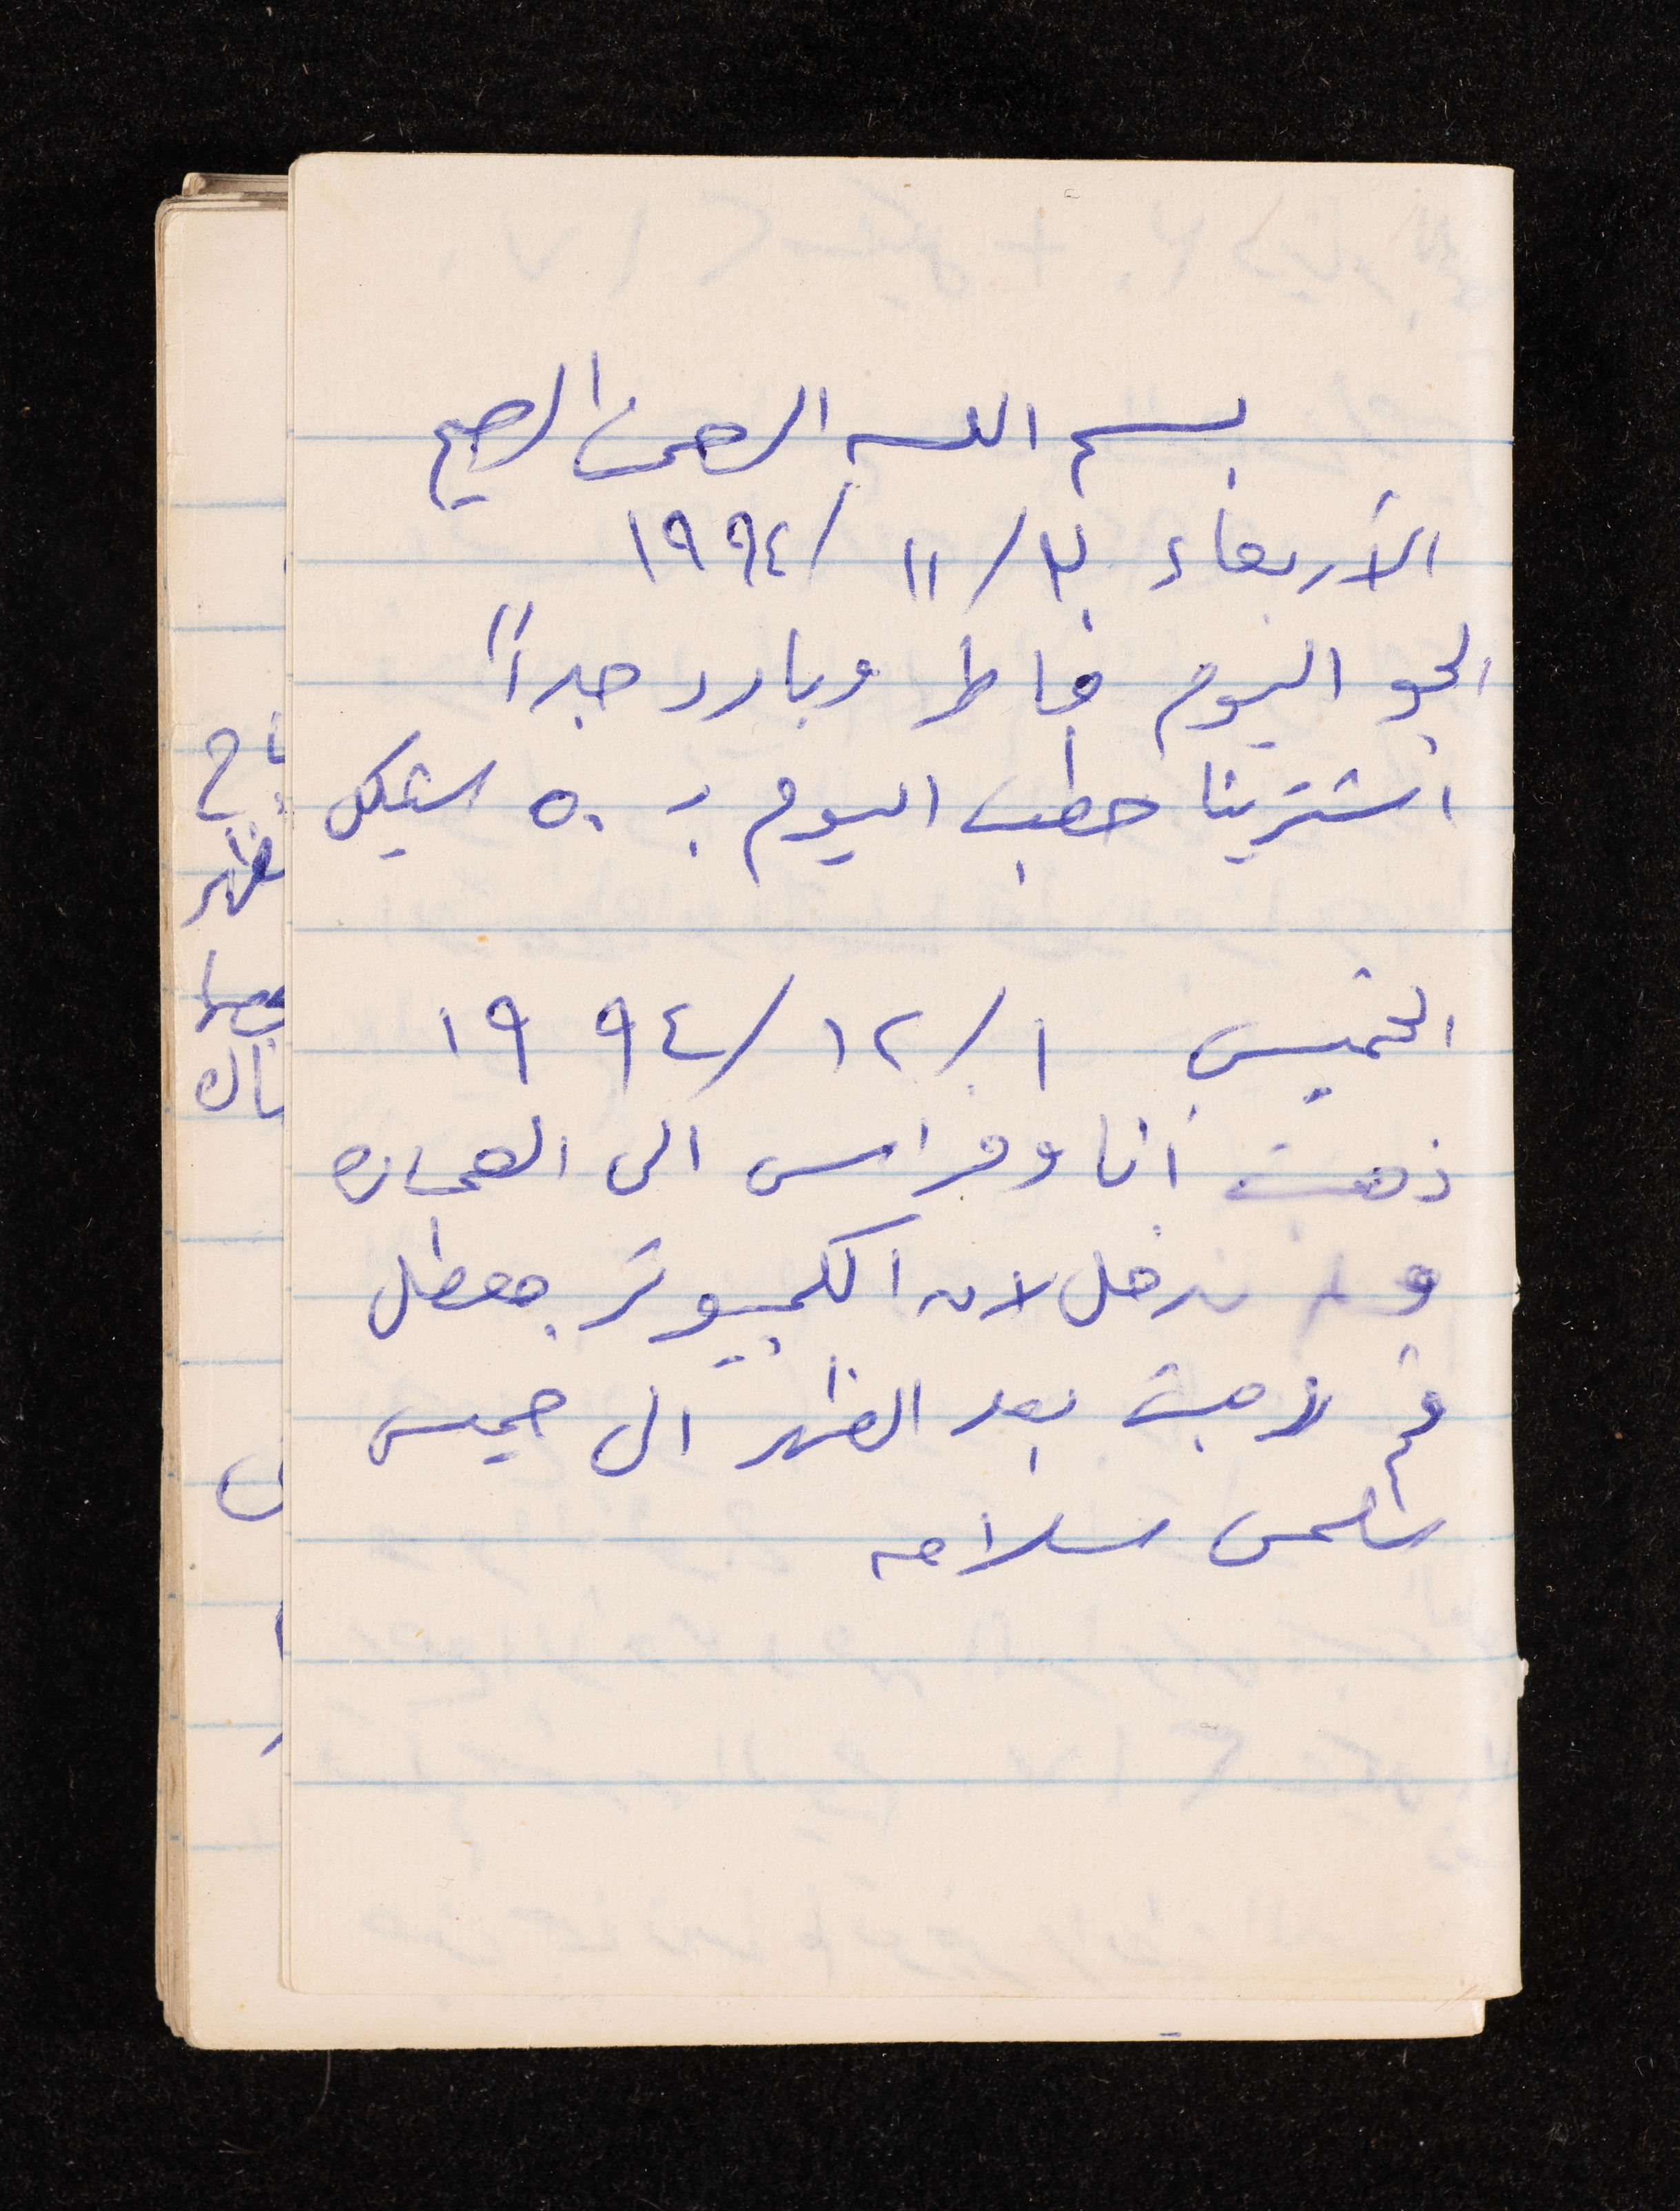 بسم الله الرحمن الرحيم
الأربعاء ٣٠/ ١١ /١٩٩٤
الجو اليوم ماطر وبارد جداً
اشترينا حطب اليوم بـ ٥٠ شيكل
الخميس ١ /١٢ /١٩٩٤
ذهبت أنا وفراس الى العماره
ولم ندخل لان الكمبيوتر معطل
ثم ذهبت بعد الظهر الى خميس
سلامه